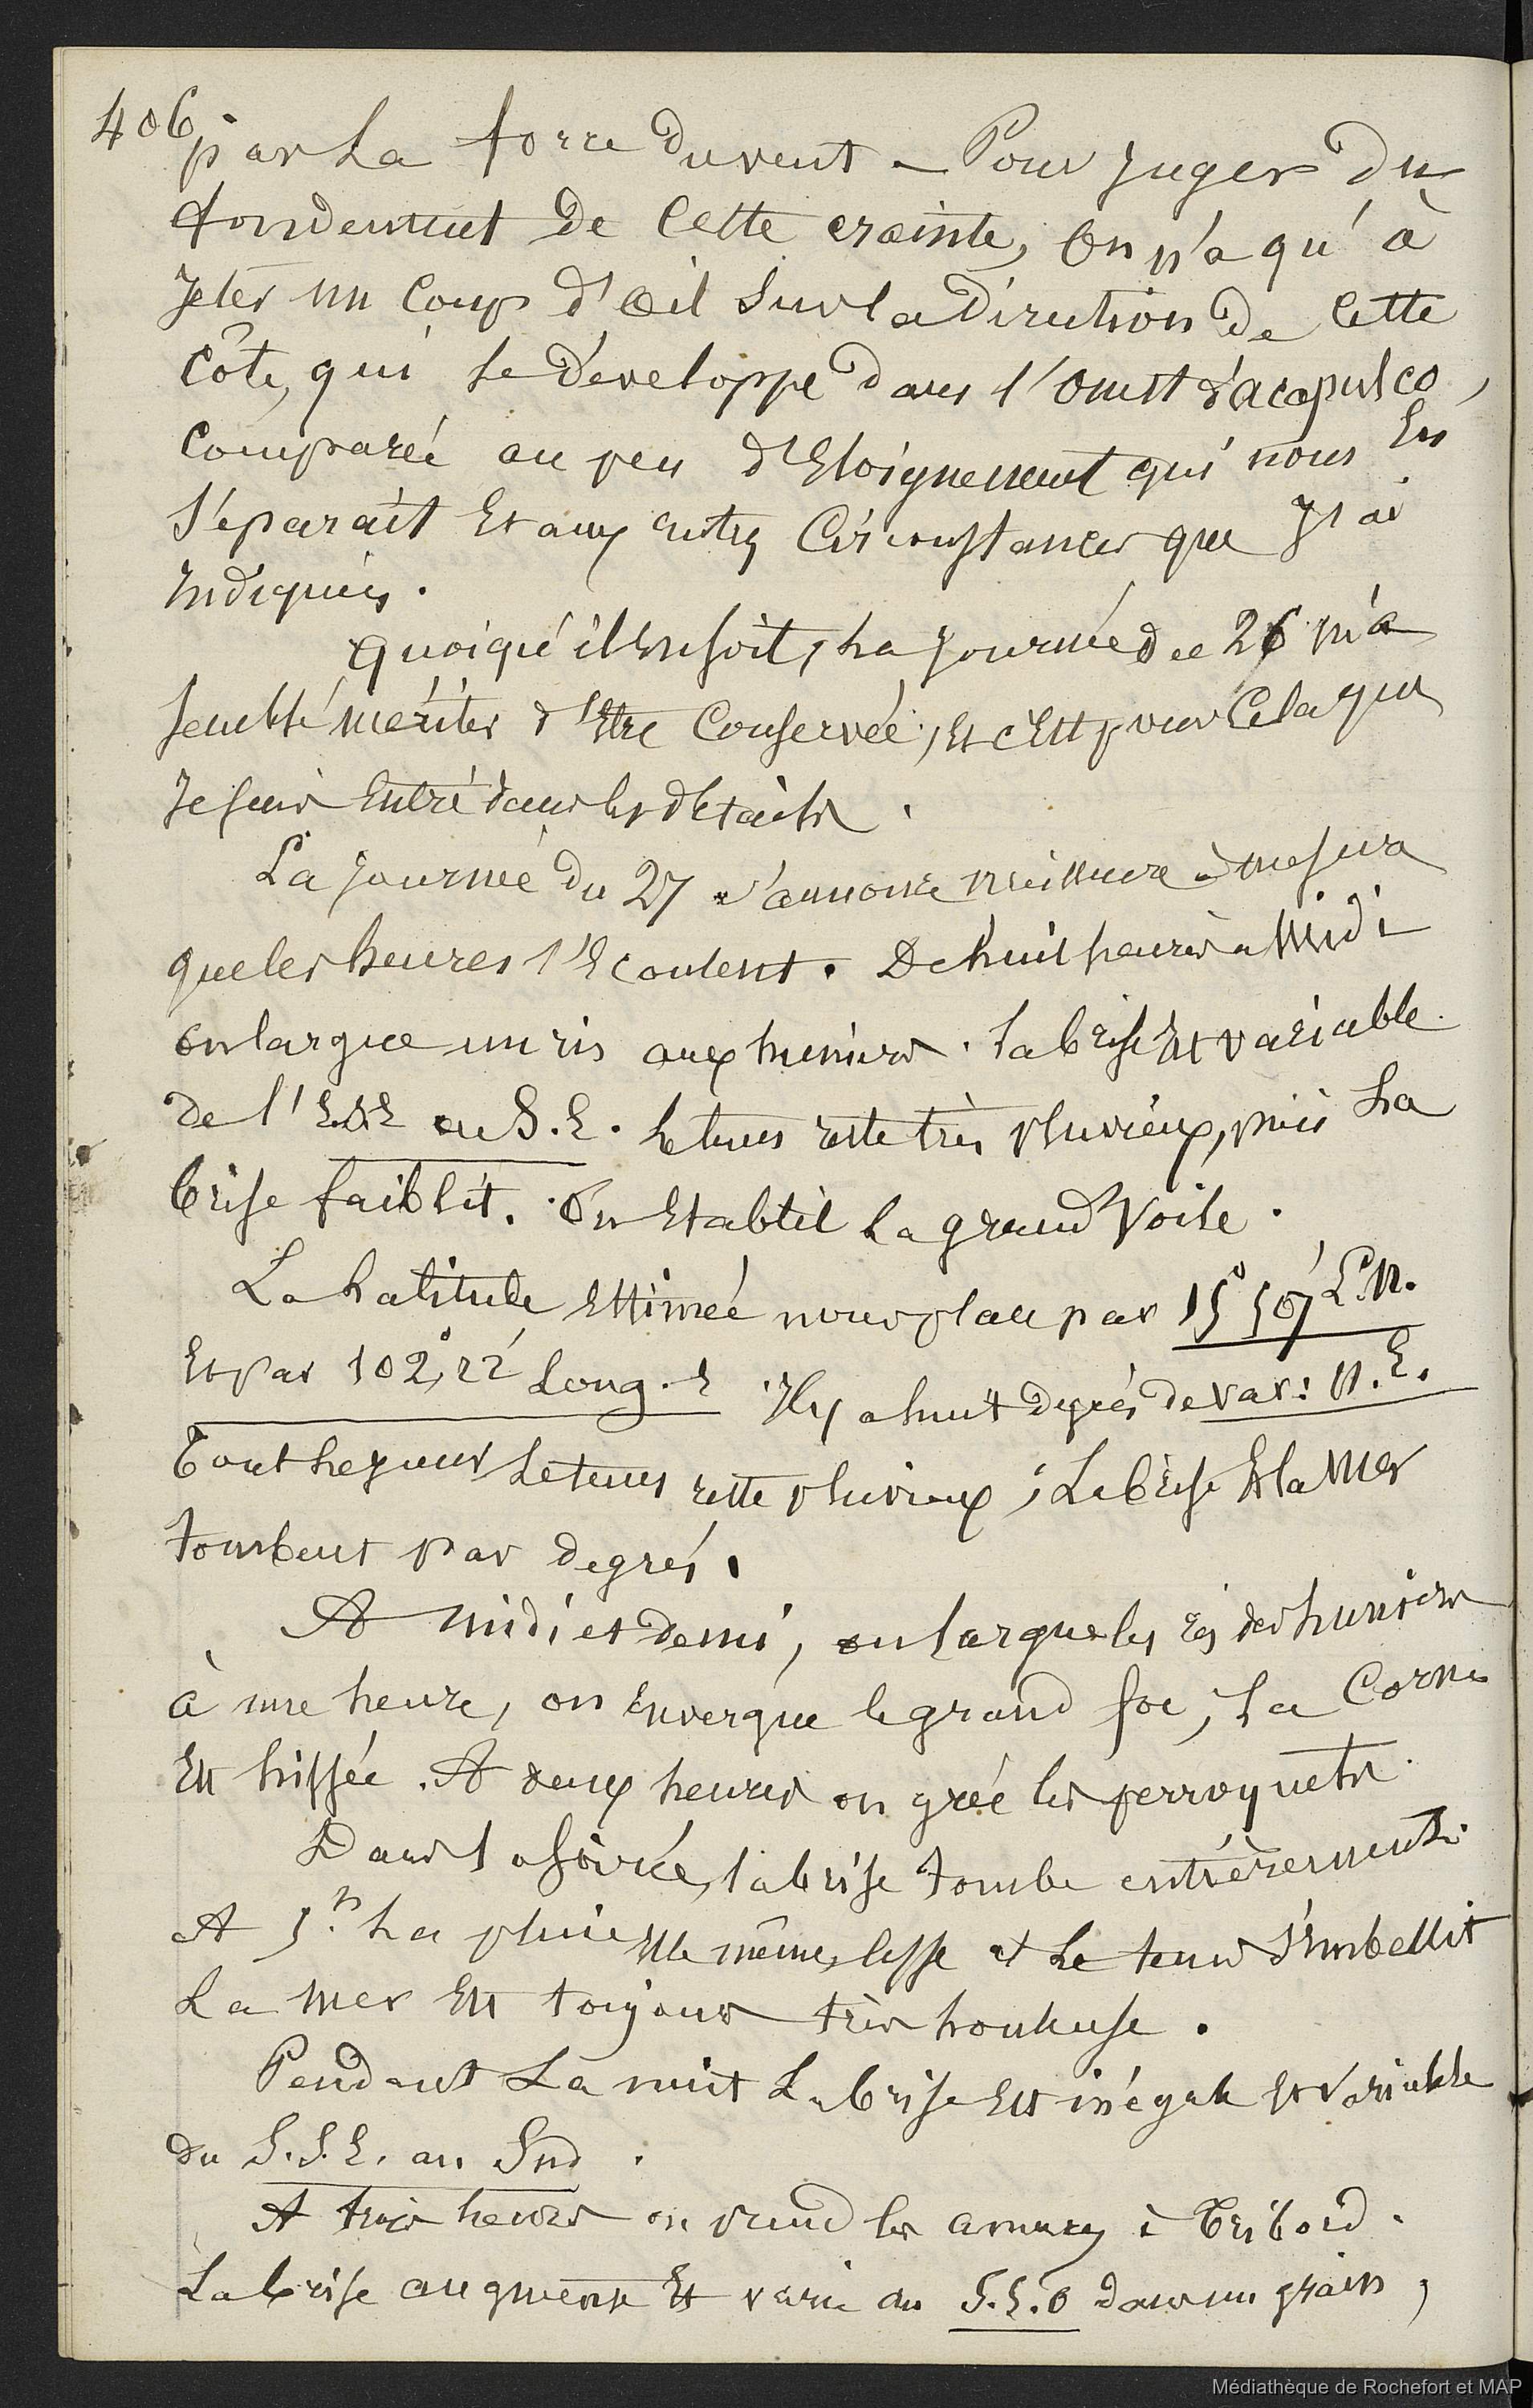 406
par La force du vent – Pour Juger du
fondement de Cette crainte, On n'a qu'à
Jeter un Coup d'Œil Sur la Direction De Cette
Côte, qui se Développe Dans l'Ouest d'acapulco,
Comparée au peu d'Eloignement qui nous En
Séparait Et aux autres Circonstances que J'ai
Indiquées.
Quoiqu'il En soit, La Journée du 26 m'a
semblé mériter d'Etre Conservée, Et c'Est pour Cela que
Je suis Entré dans les détails.
La Journée du 27 s'annonce meilleure à mesure
que les heures s'Ecoulent. De huit heures à Midi
on largue un ris aux huniers. La brise Est variable
de l'E.S.E au S.E. Le tems reste très pluvieux, puis La
brise faiblit. On Etablit La grand Voile.
La Latitude Estimée nous place par 15° 50' L.N.
Et par 102°,22' Long. E Il y a huit degrés de var: N.E.
Tout le Jour Le tems reste pluvieux ; La brise Et la Mer
tombent par degrés.
A midi et demi, on largue les ris des huniers
à une heure, on Envergue le grand foc, La Corne
Est hissée. A deux heures on grée les perroquets.
Dans la Soirée, la brise tombe entièrement.
A 5.h La pluie Elle même, cesse et Le tems S'Embellit
La Mer Est toujours très houleuse.
Pendant La nuit La brise Est inégale Et Variable
du S.S.E. au Sud.
A trois heures on prend les amures à Tribord.
La brise augmente Et varie au S.S.O dans un grain,
Médiathèque de Rochefort et MAP